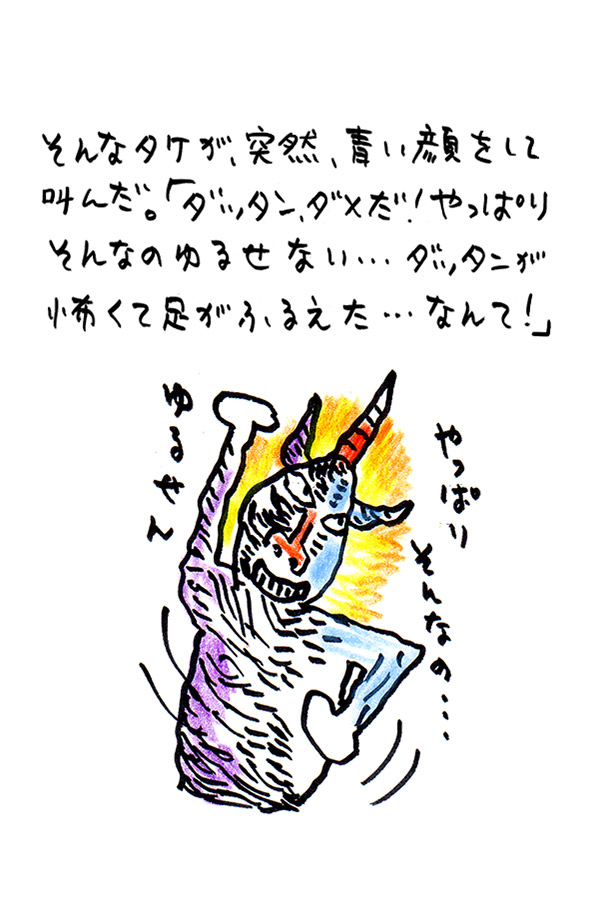 そんなタケが、突然、青い顔をして
叫んだ。「ダッタン、ダメだ!やっぱり
そんなのゆるせない…ダッタンが
怖くて足がふるえた…なんて!」
やっぱり
そんなの…
ゆるせん